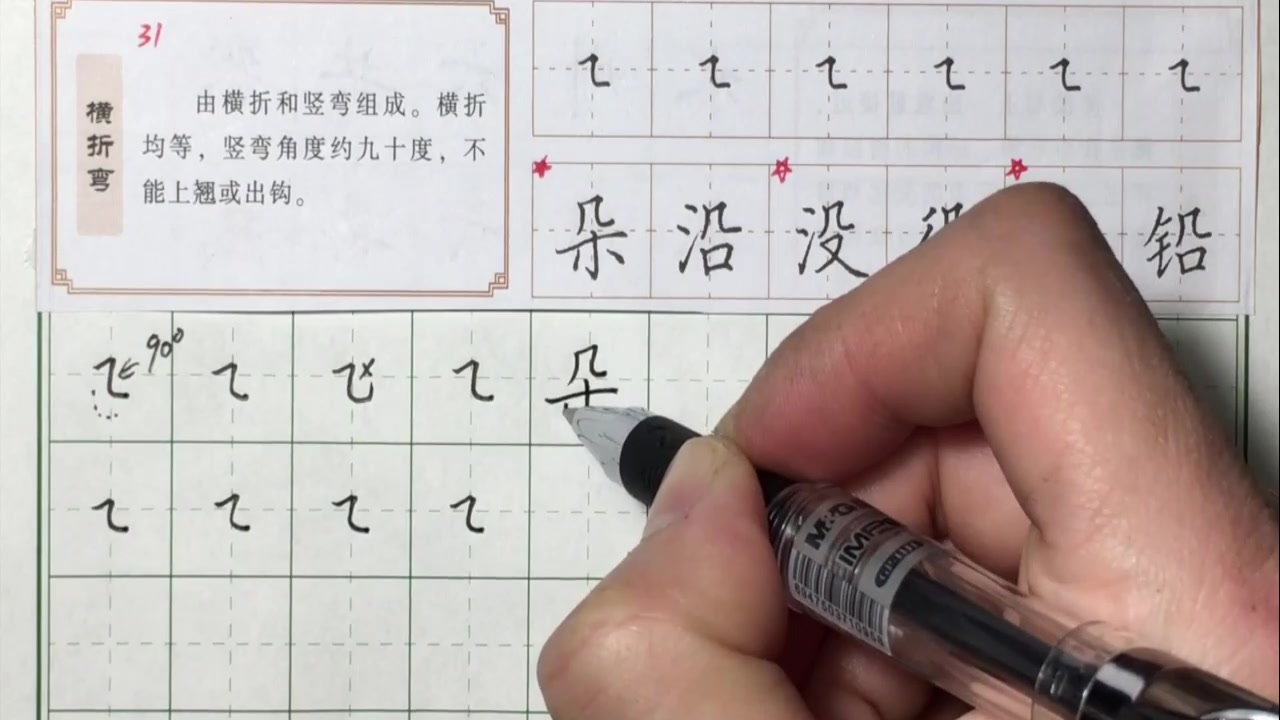 31
横折弯
由横折和竖弯组成。横折
均等，竖弯角度约九十度，不
能上翘或出钩。
㇍ ㇍ ㇍ ㇍ ㇍ ㇍
朵 沿 没 铅
㇍ 90° ㇍ ㇍ × ㇍ 朵
㇍ ㇍ ㇍ ㇍
M&G